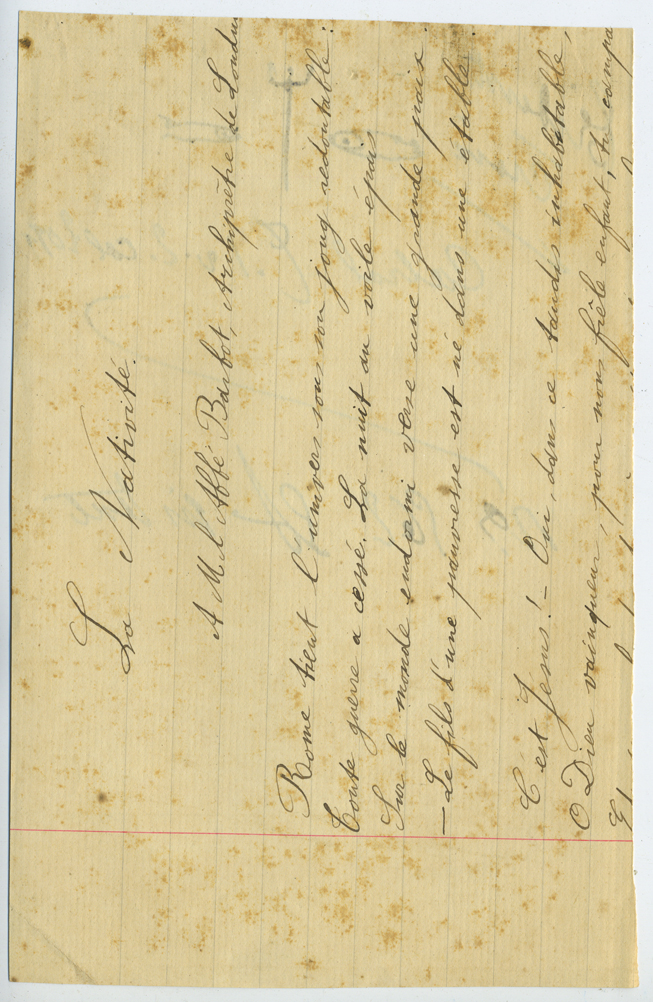 La Nativité.
A M. l'Abbé Barbot, Archiprêtre de Loudun
Rome tient l'univers sous son joug redoutable.
Toute guerre a cessé. La nuit au voile épais
Sur le monde endormi verse une grande paix.
— Le fils d'une pauvresse est né dans une étable.
C'est Jésus! — Oui, dans ce taudis inhabitable,
O Dieu vainqueur, pour nous frêle enfant, tu
Et